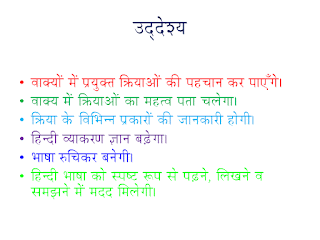 उद्देश्य
• वाक्यों में प्रयुक्त क्रियाओं की पहचान कर पाएँगे।
• वाक्य में क्रियाओं का महत्व पता चलेगा।
• क्रिया के विभिन्न प्रकारों की जानकारी होगी।
• हिन्दी व्याकरण ज्ञान बढ़ेगा।
• भाषा रुचिकर बनेगी।
• हिन्दी भाषा को स्पष्ट रूप से पढ़ने, लिखने व
समझने में मदद मिलेगी।